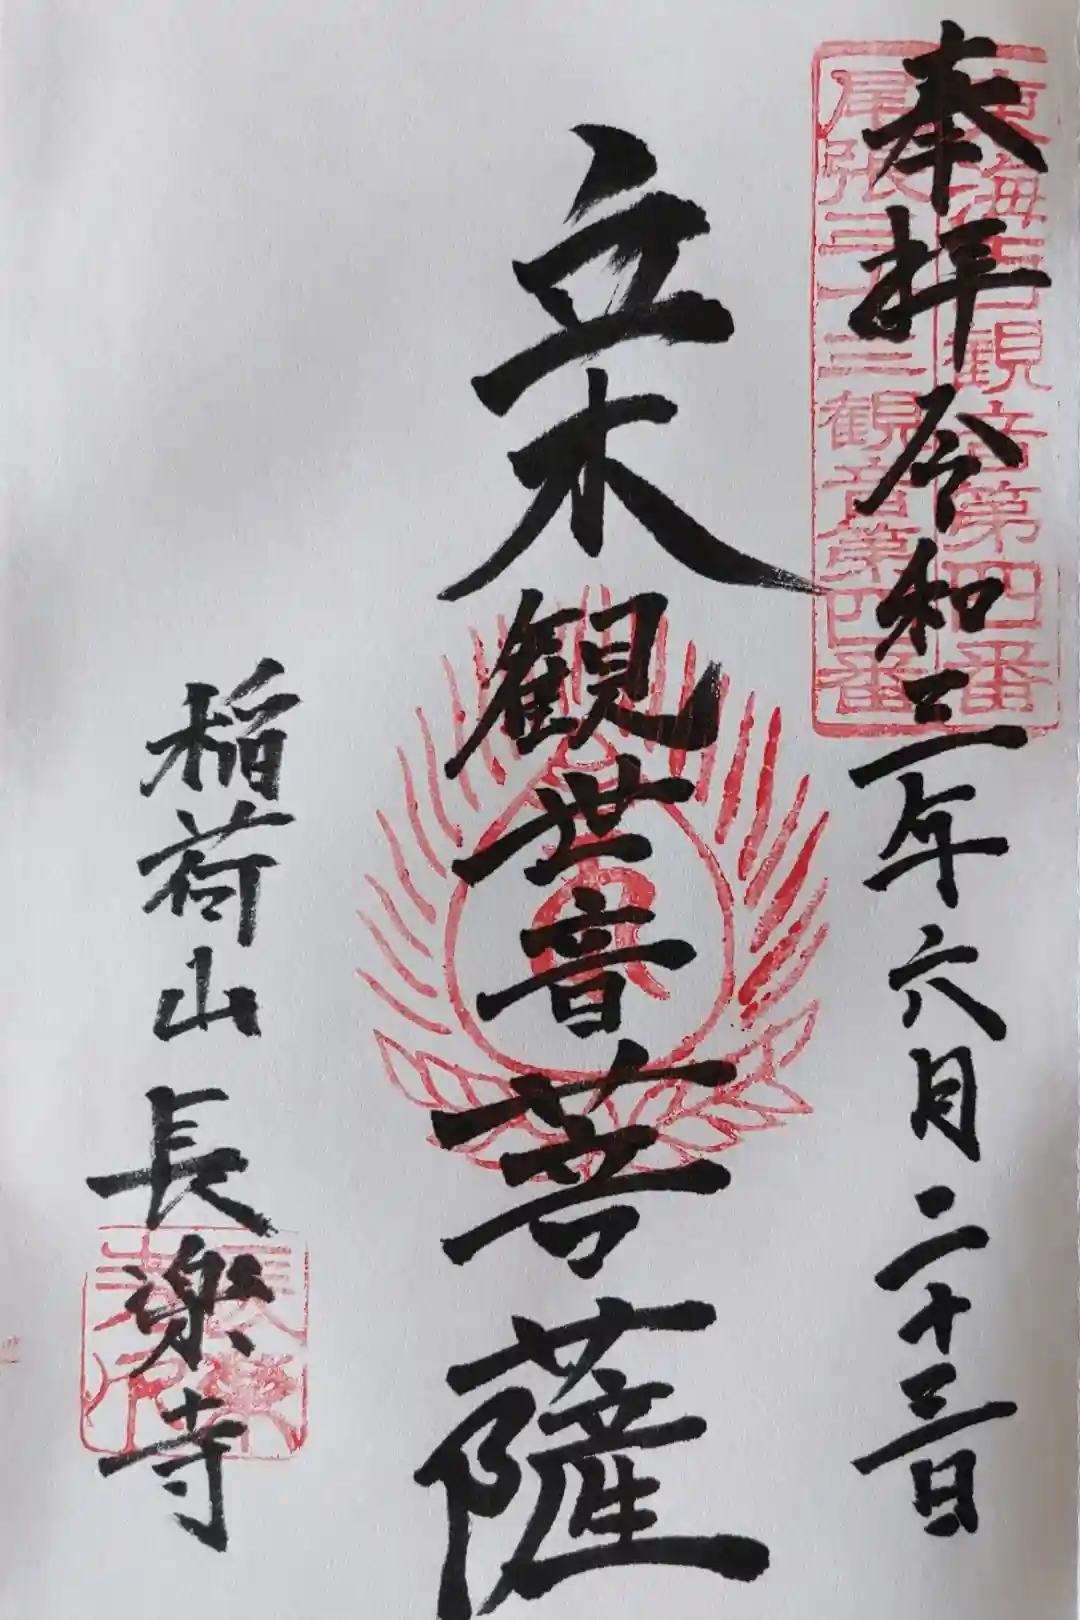 奉拝 令和三年六月二十三日
東海百観音第四番
尾張三十三観音第四番
立木観世音菩薩
稲荷山 長楽寺